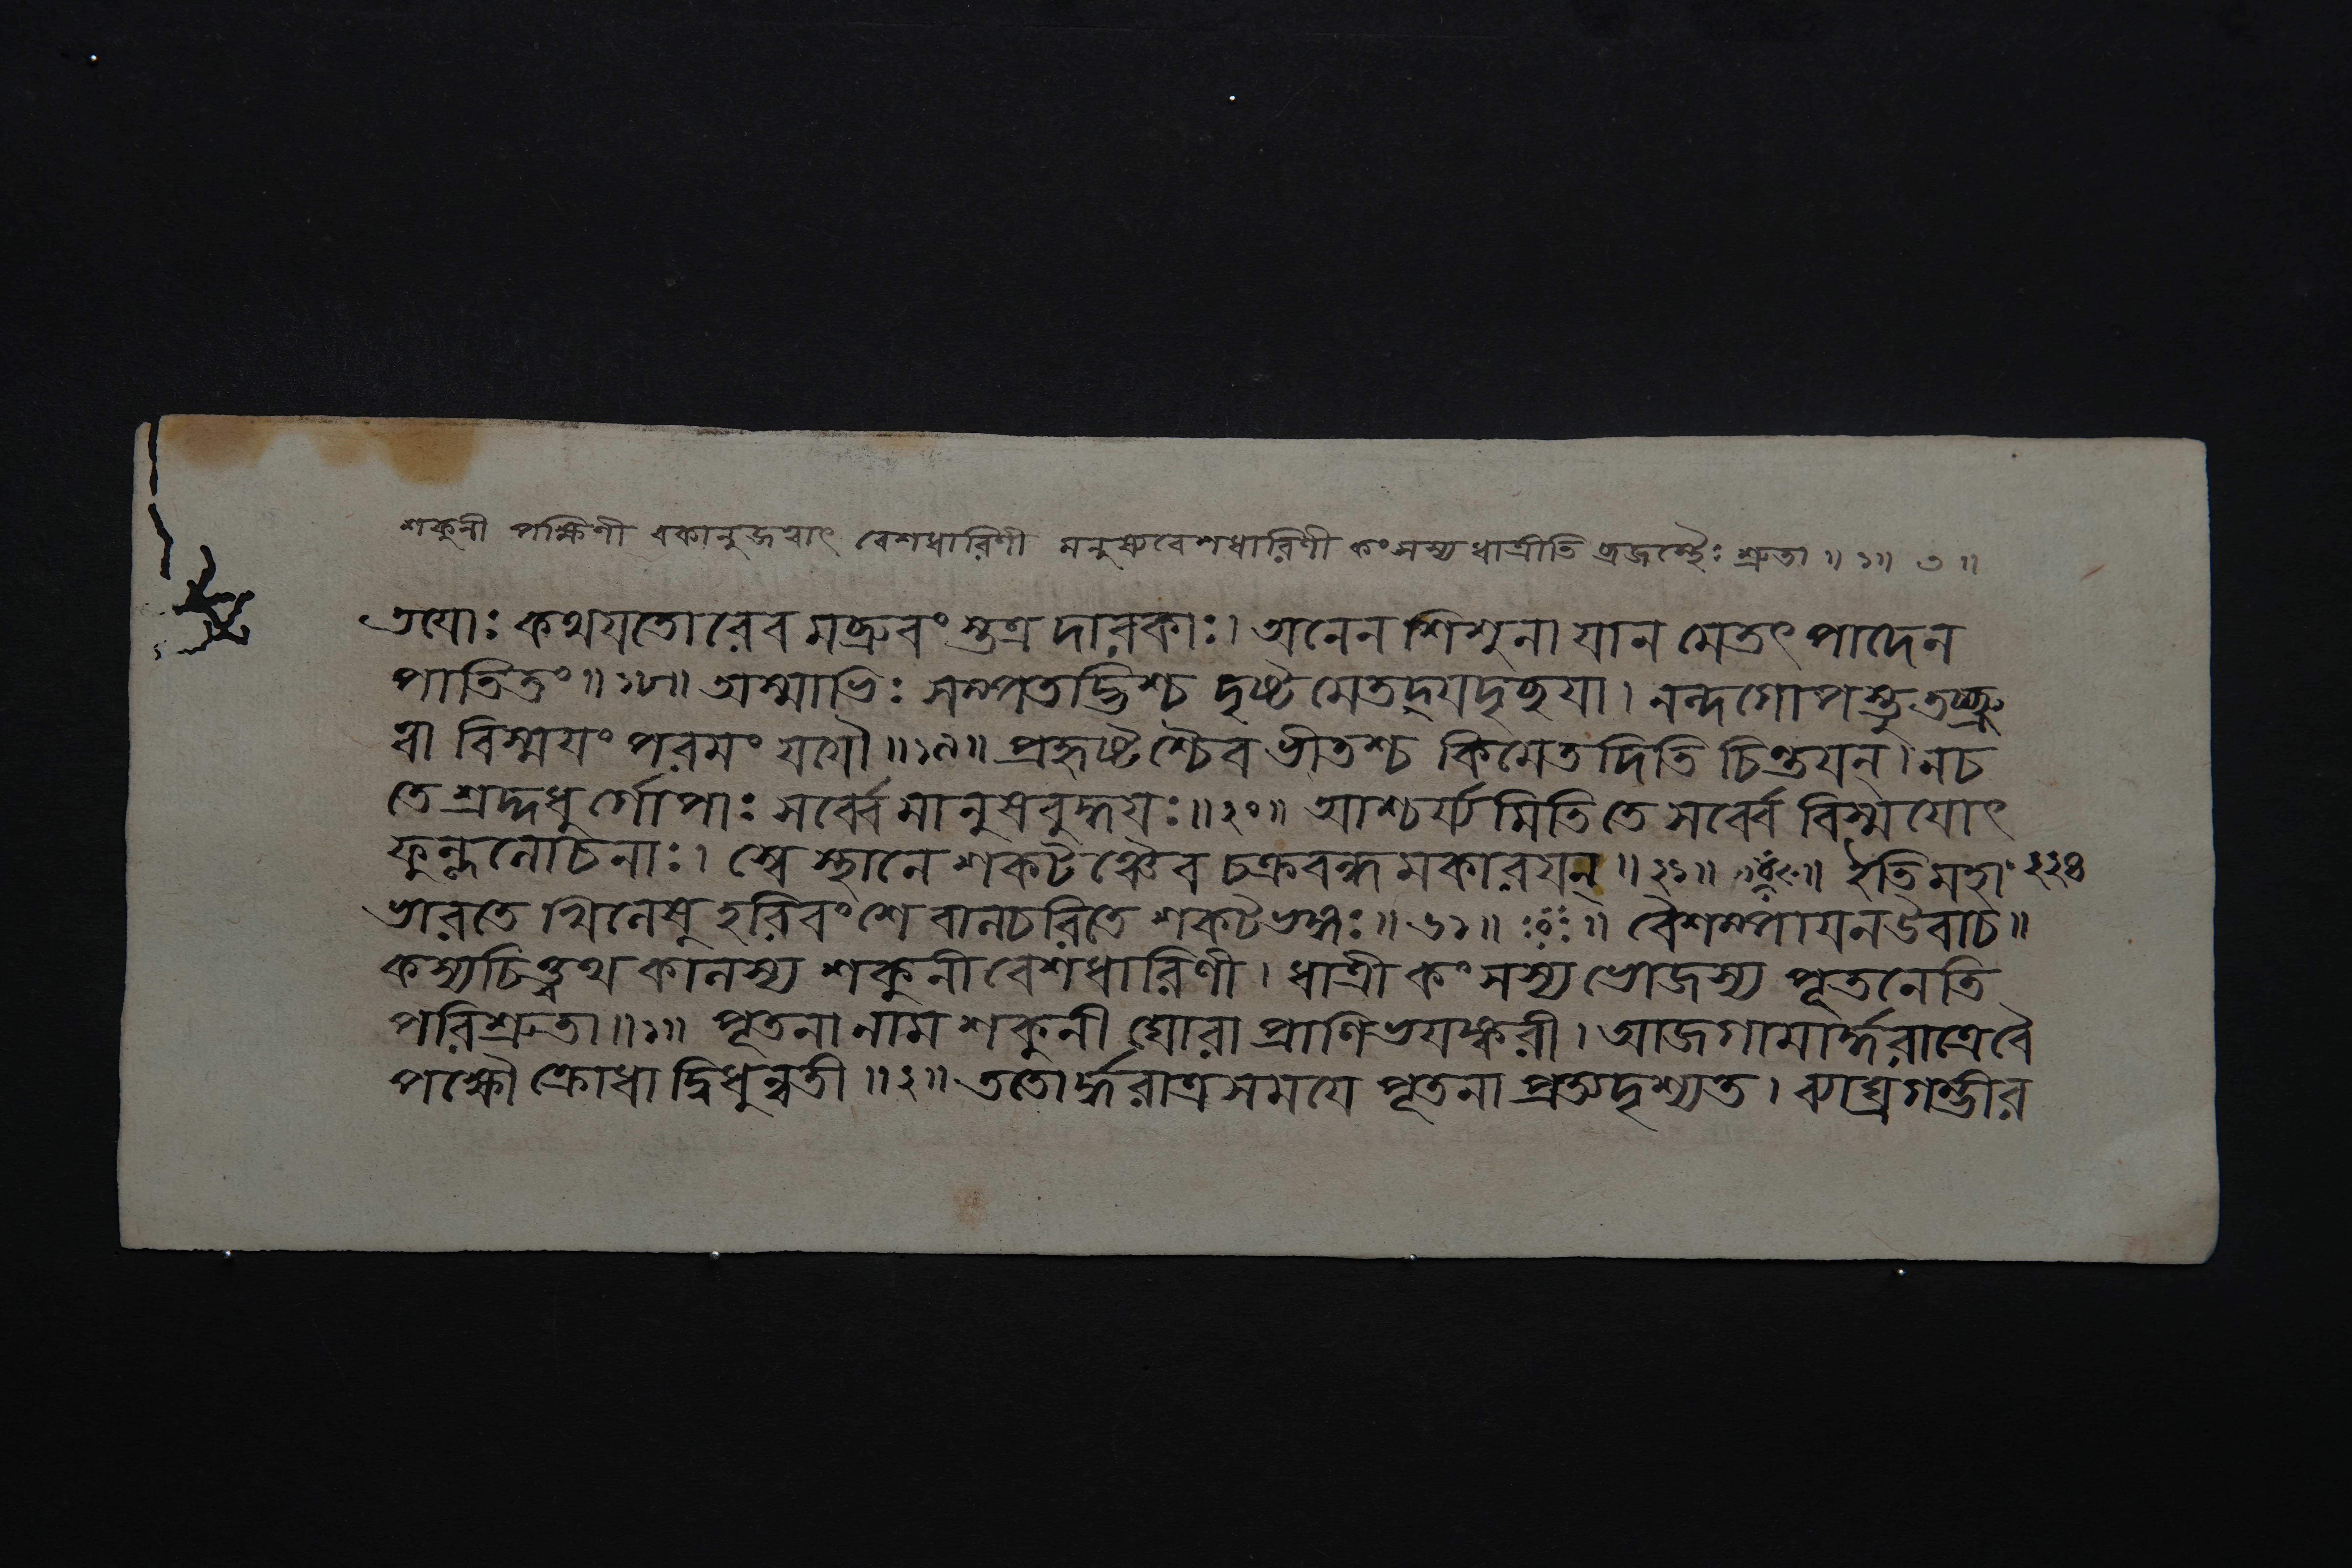 শকুনী পক্ষিণী বকানুজত্বাৎ বেশধারিণী মনুষ্যবেশধারিণী কংসস্য ধাত্রীতি ব্রজস্থৈঃ শ্রুতা ॥ ১॥ ৩ ॥
তয়োঃ কথয়তোরেব মব্রুবং স্তত্র দারকাঃ। অনেন শিশুনা যান মেতৎ পাদেন
পাতিতং॥১৮॥ অস্মাভিঃ সম্পতদ্ভিশ্চ দৃষ্ট মেতদ্যদৃচ্ছয়া। নন্দগোপস্তু তচ্ছ্রু
ত্বা বিস্ময়ং পরমং যযৌ॥১৯॥ প্রহৃষ্টশ্চৈব ভীতশ্চ কিমেতদিতি চিন্তয়ন্। নচ
তে শ্রদ্দধুর্গোপাঃ সর্ব্বে মানুষবুদ্ধয়ঃ॥২০॥ আশ্চর্য্যমিতি তে সর্ব্বে বিস্ময়োৎ
ফুল্ললোচনাঃ। স্বে স্থানে শকটঞ্চৈব চক্রবন্ধমকারয়ন্॥২১॥ ইতি মহা ২২৪
ভারতে খিলেষু হরিবংশে বালচরিতে শকটভঙ্গঃ॥ ৬১॥ বৈশম্পায়ন উবাচ॥
কস্যচিত্ত্বথ কালস্য শকুনী বেশধারিণী। ধাত্রী কংসস্য ভোজস্য পূতনেতি
পরিশ্রুতা॥১॥ পূতনা নাম শকুনী ঘোরা প্রাণিভয়ঙ্করী। আজগামার্দ্ধরাত্রে বৈ
পক্ষৌ ক্রোধাদ্বিধুন্বতী॥২॥ ততোর্দ্ধরাত্রসময়ে পূতনা প্রত্যদৃশ্যত। ব্যাঘ্রগম্ভীর